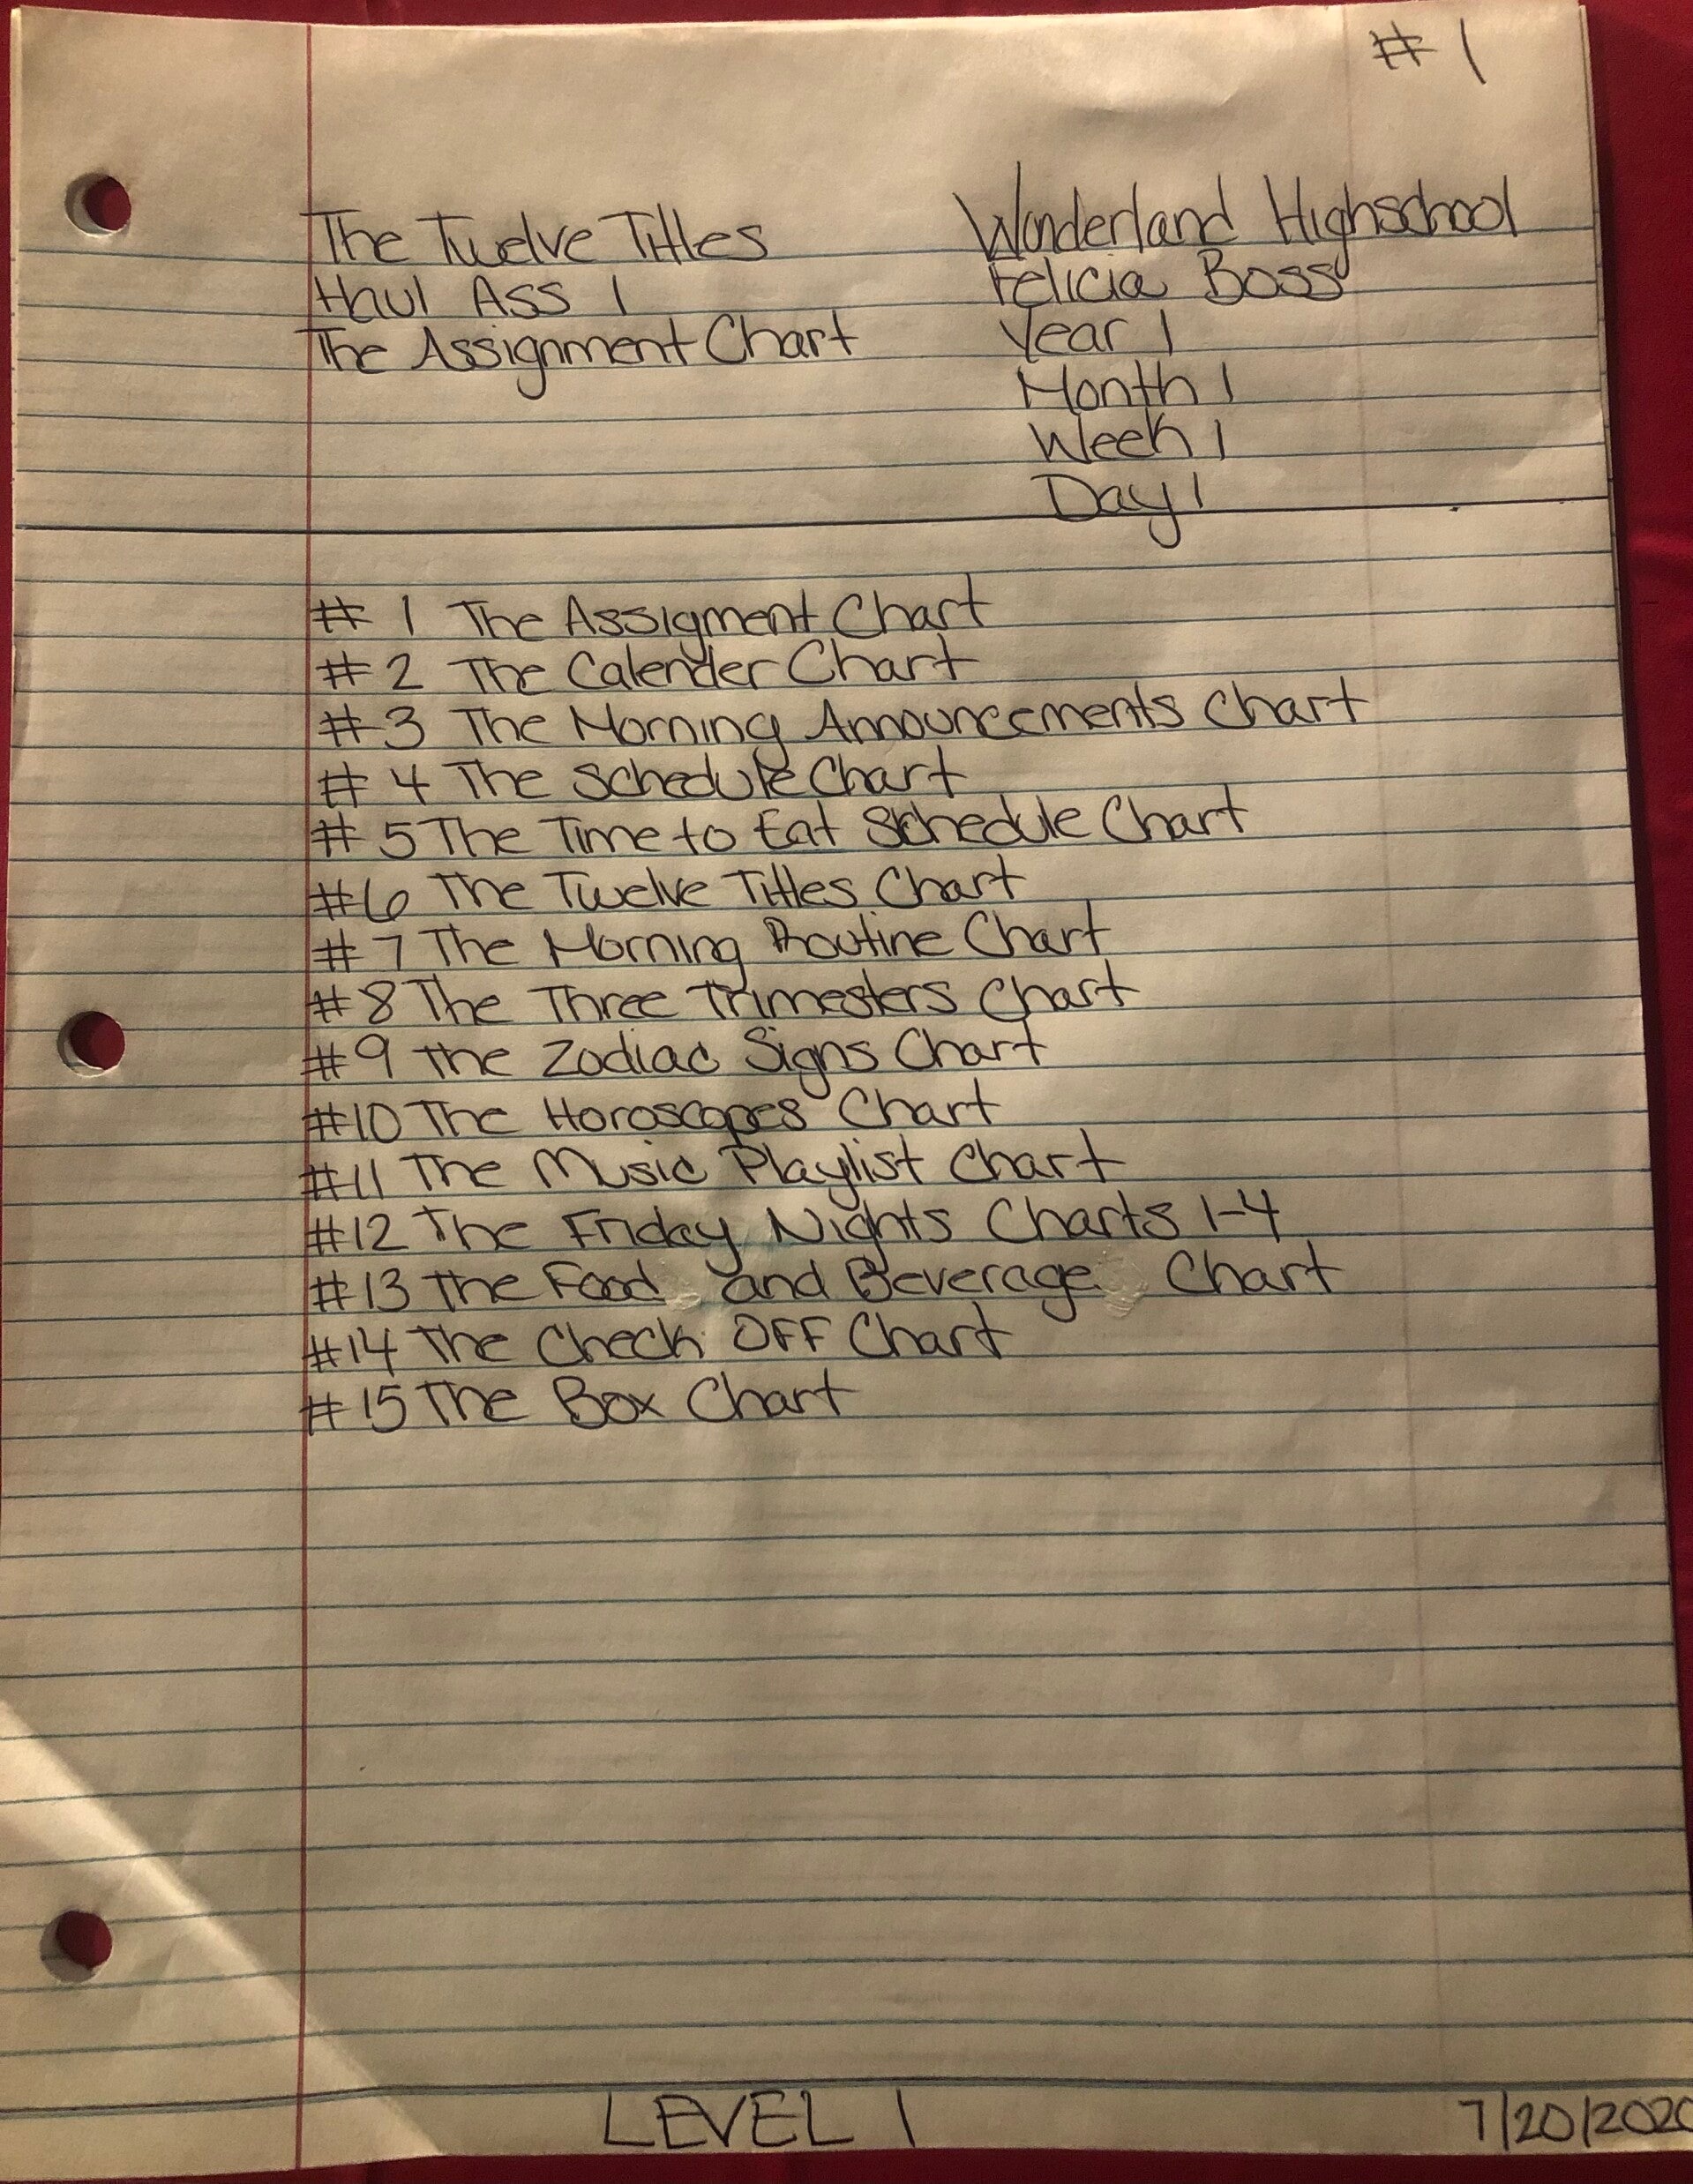 # 1
The Twelve Titles
Haul Ass 1
The Assignment Chart
Wonderland Highschool
Felicia Boss
Year 1
Month 1
Week 1
Day 1
# 1 The Assigment Chart
# 2 The Calender Chart
# 3 The Morning Announcements Chart
# 4 The Schedule Chart
# 5 The Time to Eat Schedule Chart
#6 The Twelve Titles Chart
# 7 The Morning Routine Chart
#8 The Three Trimesters Chart
#9 The Zodiac Signs Chart
#10 The Horoscopes Chart
#11 The Music Playlist Chart
#12 The Friday Nights Charts 1-4
#13 The Food and Beverage Chart
#14 The Check OFF Chart
#15 The Box Chart
LEVEL 1
7/20/2020